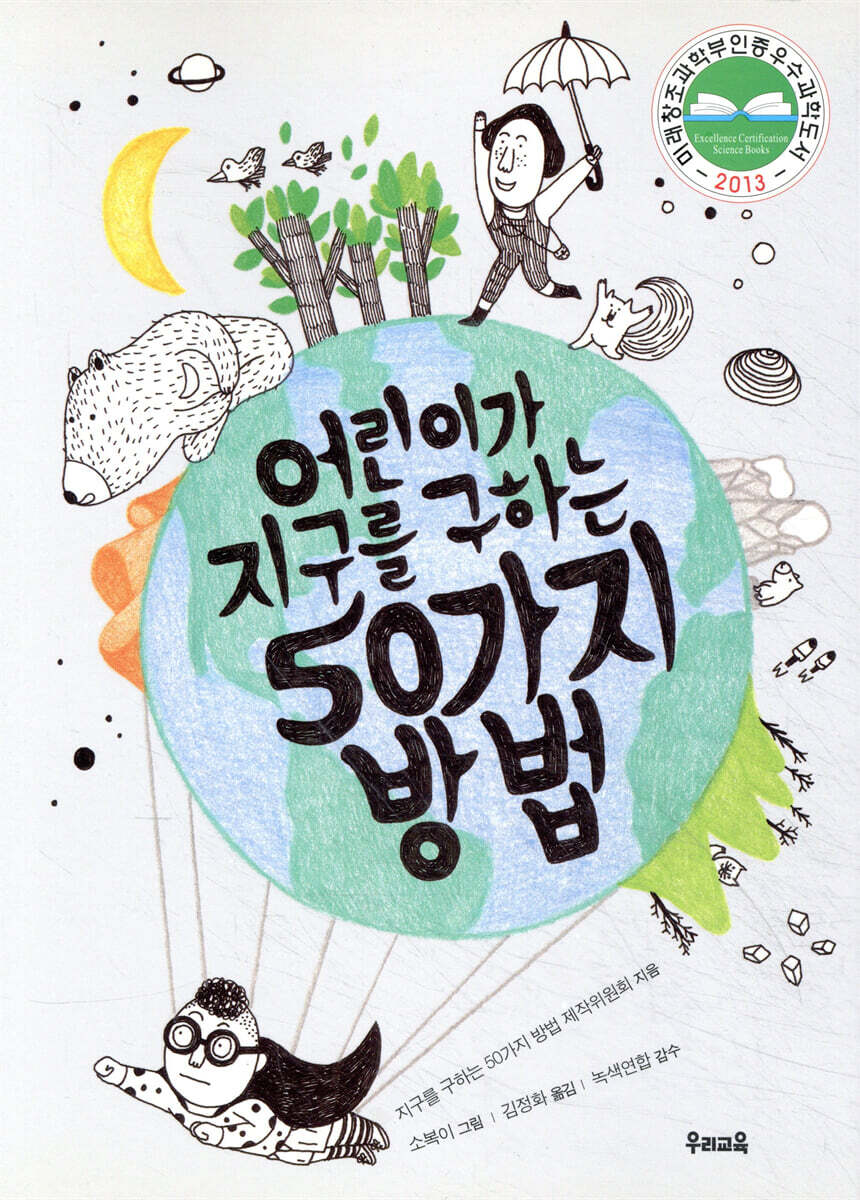 미래창조과학부인증우수과학도서
Excellence Certification
Science Books
- 2013 -
어린이가
지구를 구하는
50가지
방법
지구를 구하는 50가지 방법 제작위원회 지음
소복이 그림 | 김정화 옮김 | 녹색연합 감수
우리교육